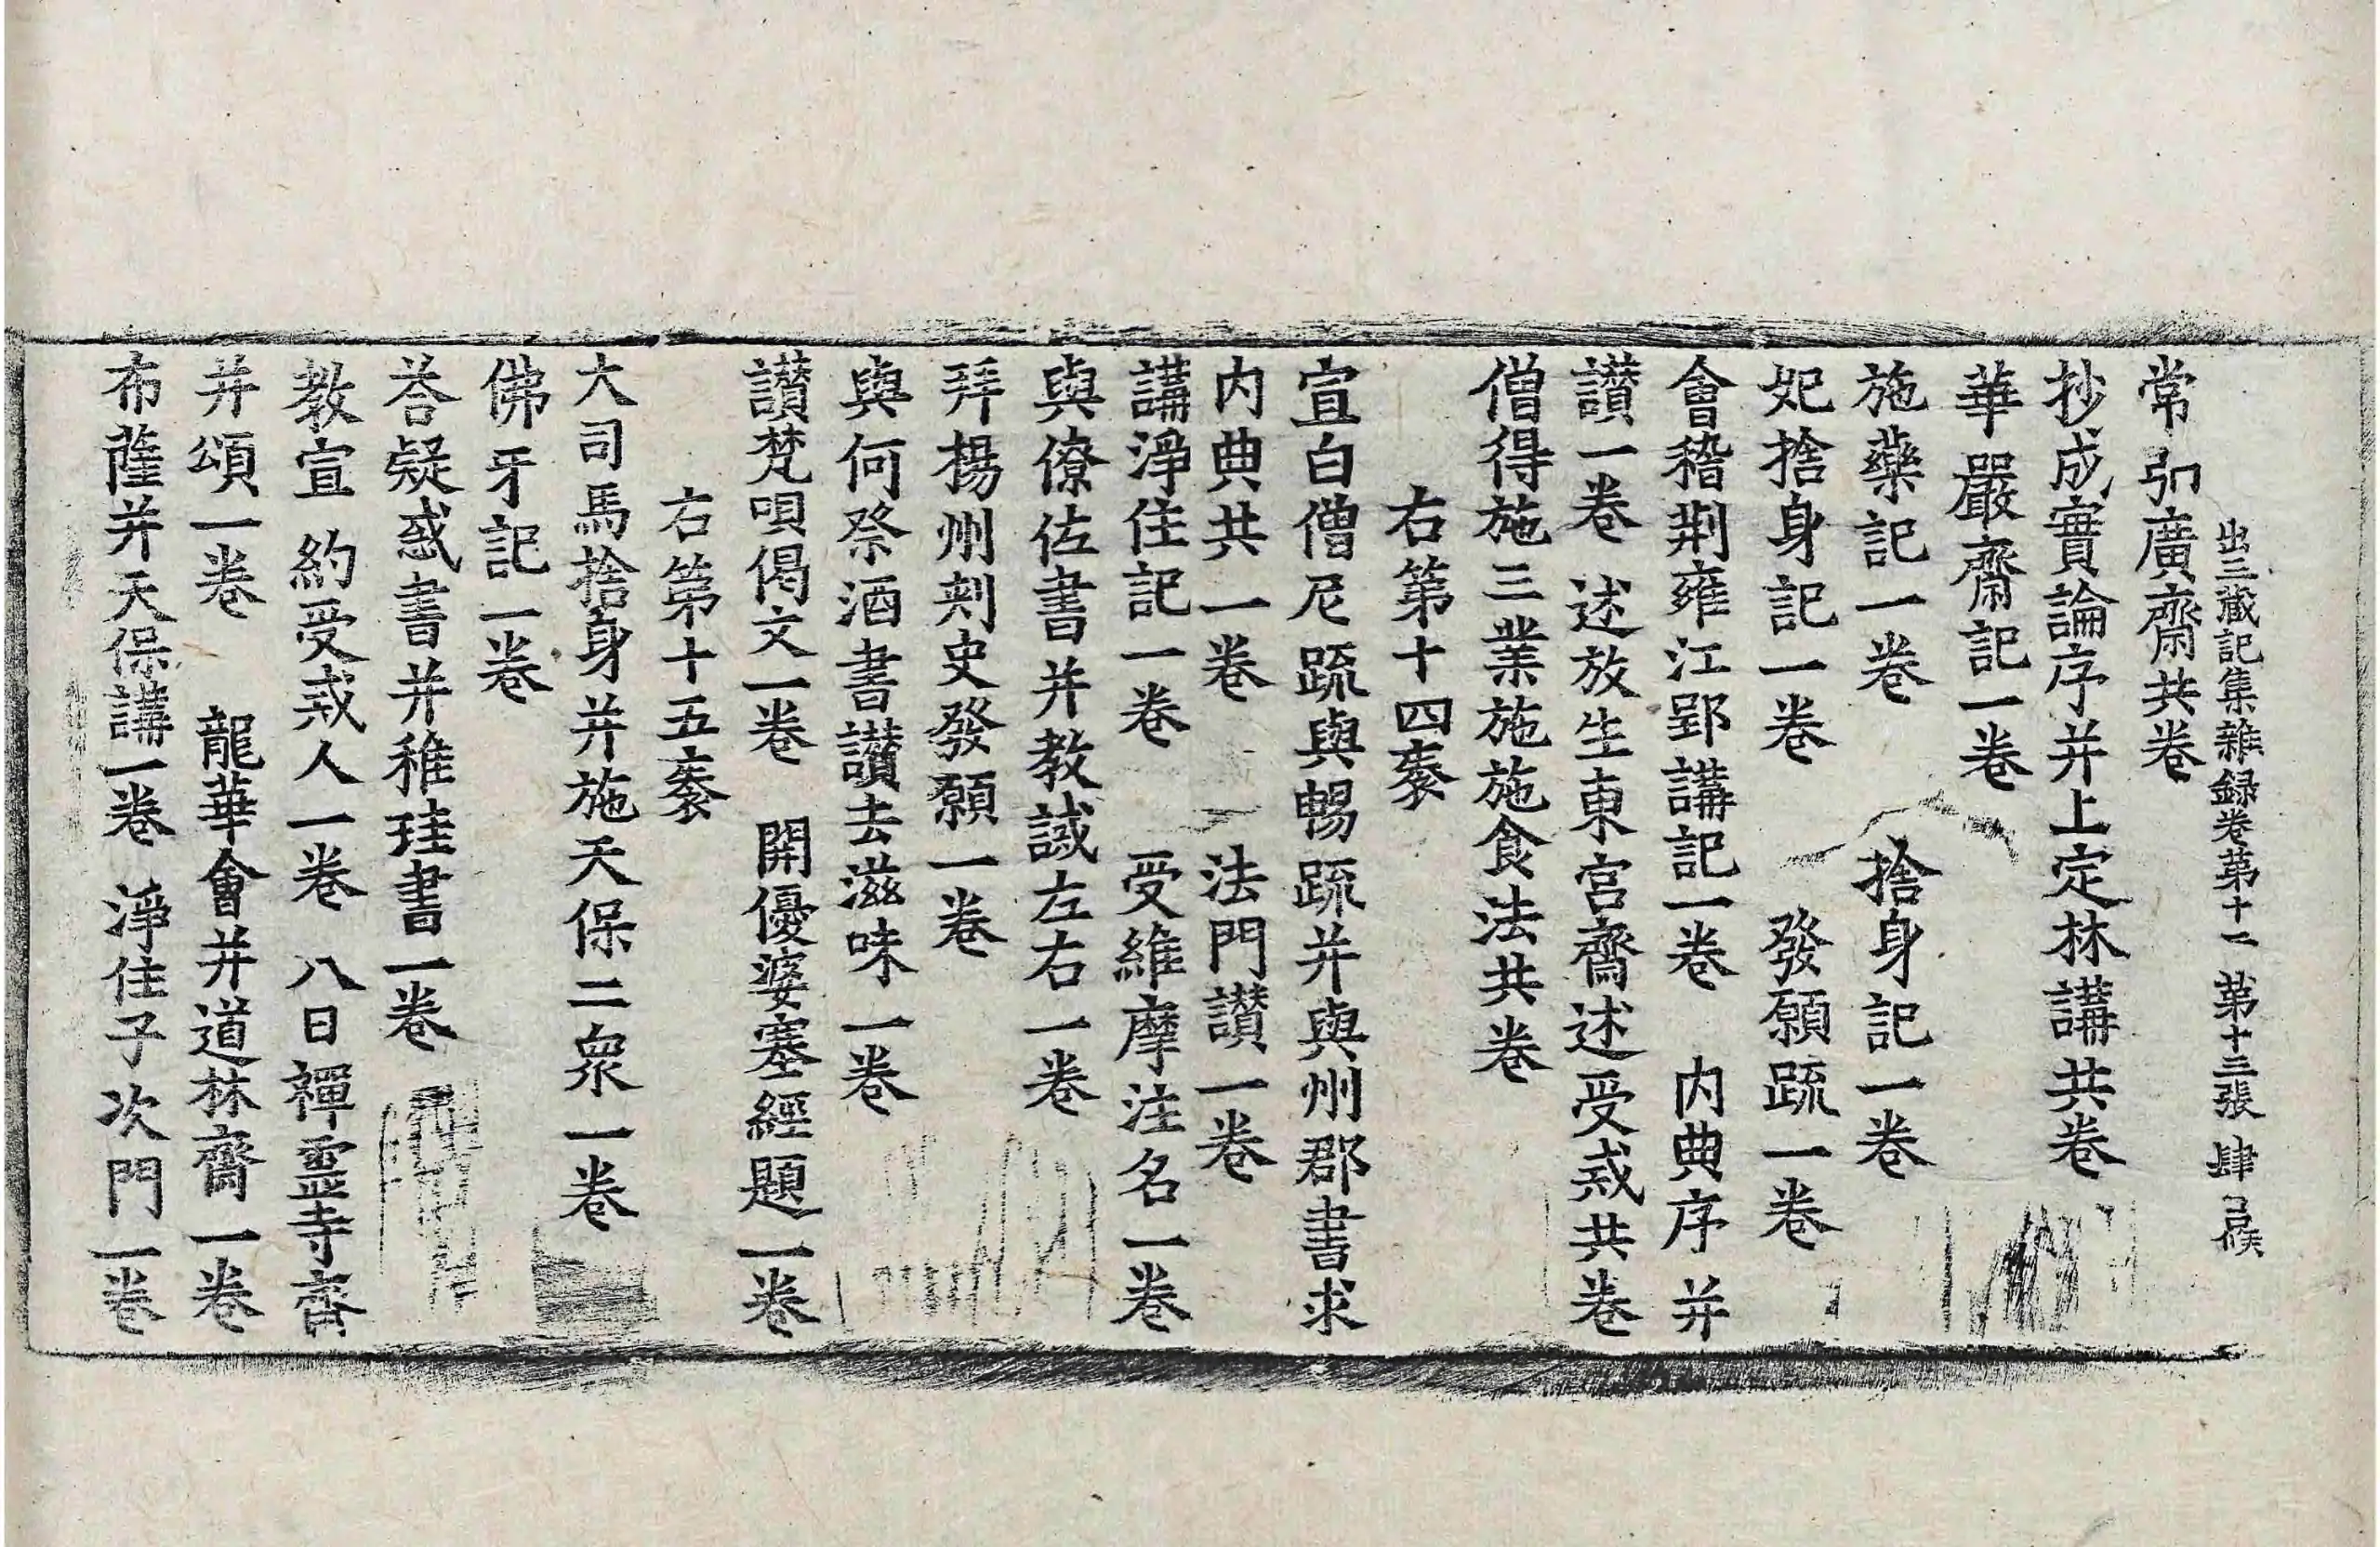 出三藏記集雜録卷第十二 第十三張 肆
常 廣齋共卷
抄成實論序并上定林講共卷
華嚴齋記一卷
施藥記一卷 捨身記一卷
妃捨身記一卷 發願䟽一卷
會稽荆雍江郢講記一卷 内典序并
讃一卷 述放生東宮齋述受戒共卷
僧得施三業施施食法共卷
右第十四袠
宣白僧尼䟽與暢䟽并與州郡書求
内典共一卷 法門讃一卷
講淨住記一卷 受維摩注名一卷
與僚佐書并教誡左右一卷
拜楊州刾史發願一卷
與何祭酒書讃去滋味一卷
讃梵唄偈文一卷 開優婆塞經題一卷
右第十五袠
大司馬捨身并施天保二衆一卷
佛牙記一卷
荅疑惑書并稚珪書一卷
教宣約受戒人一卷 八日禪靈寺齋
并頌一卷 龍華會并道林齋一卷
布薩并天保講一卷 淨住子次門一卷